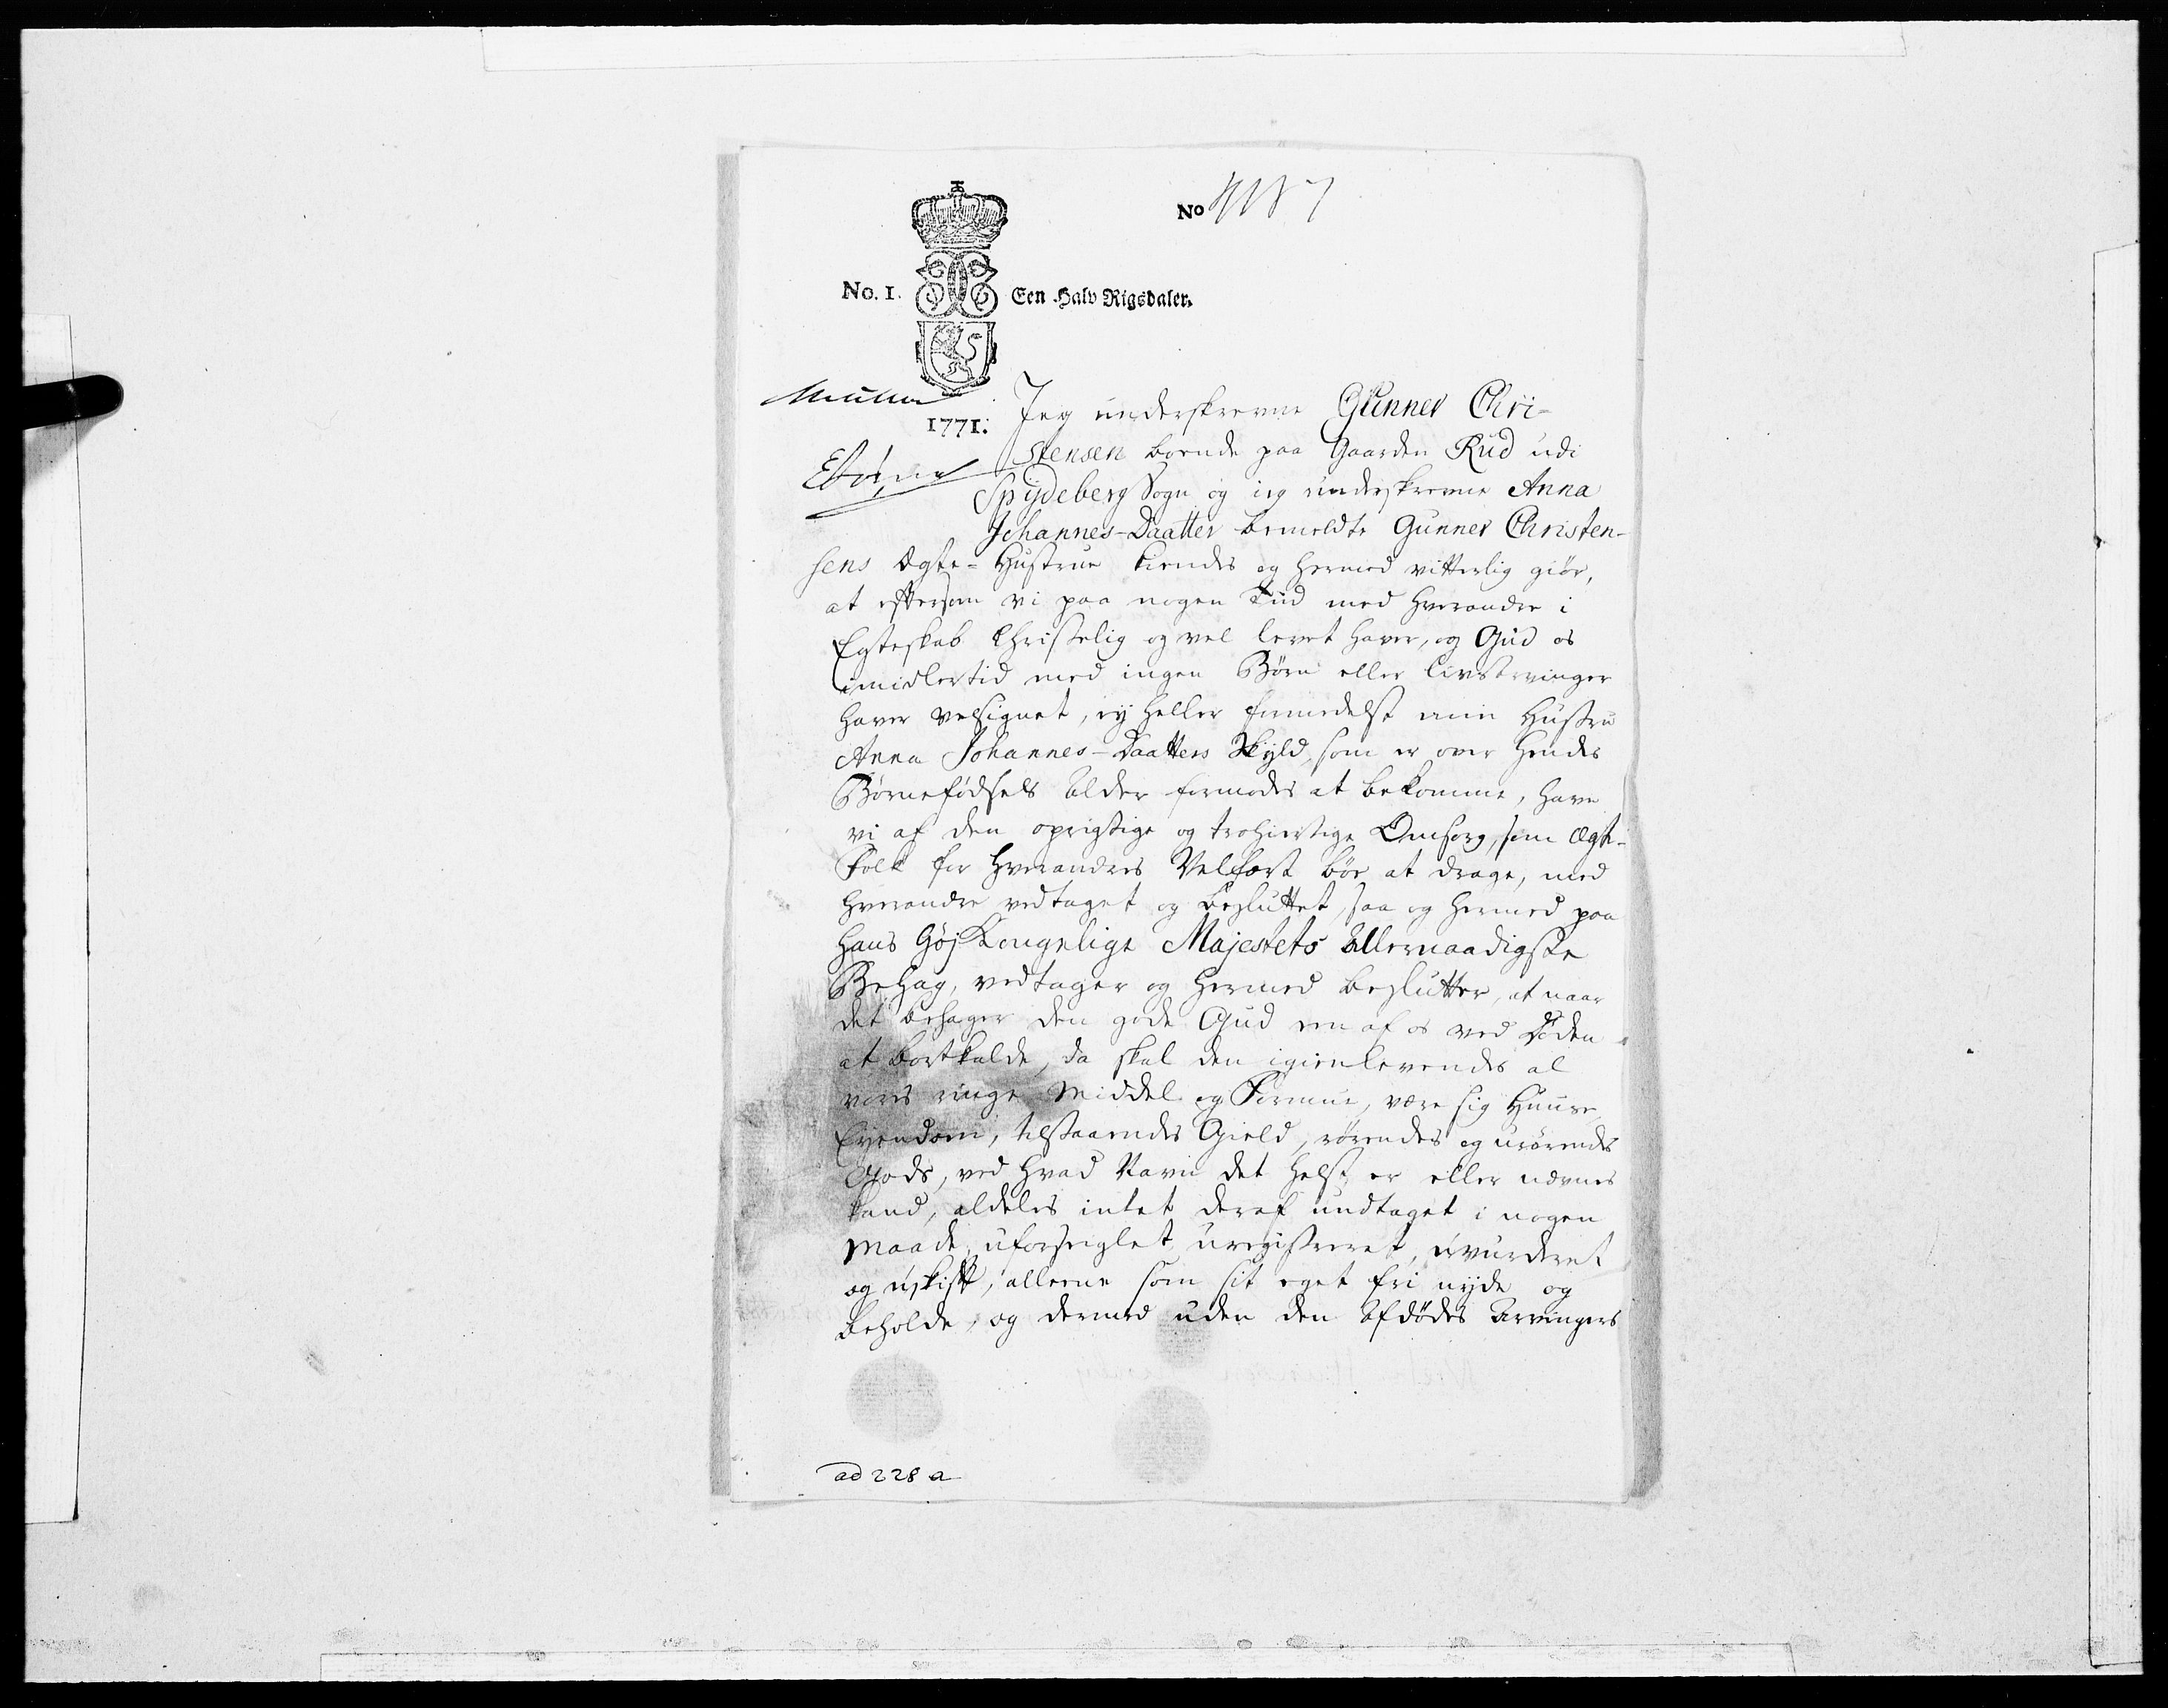 No 4187
No. 1. Een Halv Rigsdaler.
1771.
Jeg underskrevne Gunner Chri-
stensen boende paa Gaarden Rud udi
Spydeberg Sogn og jeg underskrevne Anna
Johannes-Daatter bemeldte Gunner Christen-
sens Ægte-Hustrue kiendes og hermed vitterlig giör,
at eftersom vi paa nogen Tiid med hverandre i
Egteskab Christelig og vel levet haver, og Gud os
imidlertid med ingen Börn eller Livsarvinger
haver velsignet, ey heller formedelst min Hustru
Anna Johannes-Daatters Skyld, som er over hendes
Börnefödsels Alder formodes at bekomme, have
vi af den oprigtige og trohiertige Omsorg, som Ægte-
Folk for hverandres Velfært bör at drage, med
hverandre vedtaget og besluttet, saa og hermed paa
Hans Höj Kongelige Majestets Allernaadigste
Behag, vedtager og hermed beslutter, at naar
det behager den gode Gud een af os ved Döden
at bortkalde, da skal den igienlevendes al
vores ringe Middel og Formue, være sig Huuse,
Eyendom, tilstaaendes Gield, rörendes og urörendes
Gods, ved hvad Navn det helst er eller nævnes
kand, aldeles intet deraf undtaget i nogen
Maade, uforseglet, uregistreret, uvurderet
og uskift, alleene som sit eget fri nyde og
beholde, og dermed uden den Afdödes Arvingers
ad 228 a